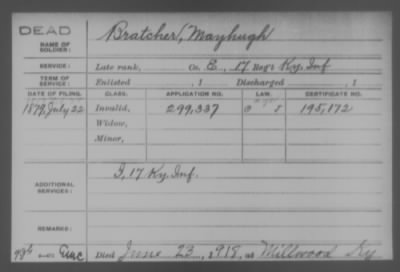 DEAD
NAME OF SOLDIER: Bratcher, Mayhugh
SERVICE: Late rank, Co. E, 17 Reg't Ky. Inf.
TERM OF SERVICE: Enlisted , 1 Discharged , 1
DATE OF FILING. CLASS. APPLICATION NO. LAW. CERTIFICATE NO.
1879, July 22 Invalid, 299,337 195,172
Widow,
Minor,
ADDITIONAL SERVICES: I, 17 Ky. Inf.
REMARKS:
Died June 23, 1918, at Millwood Ky